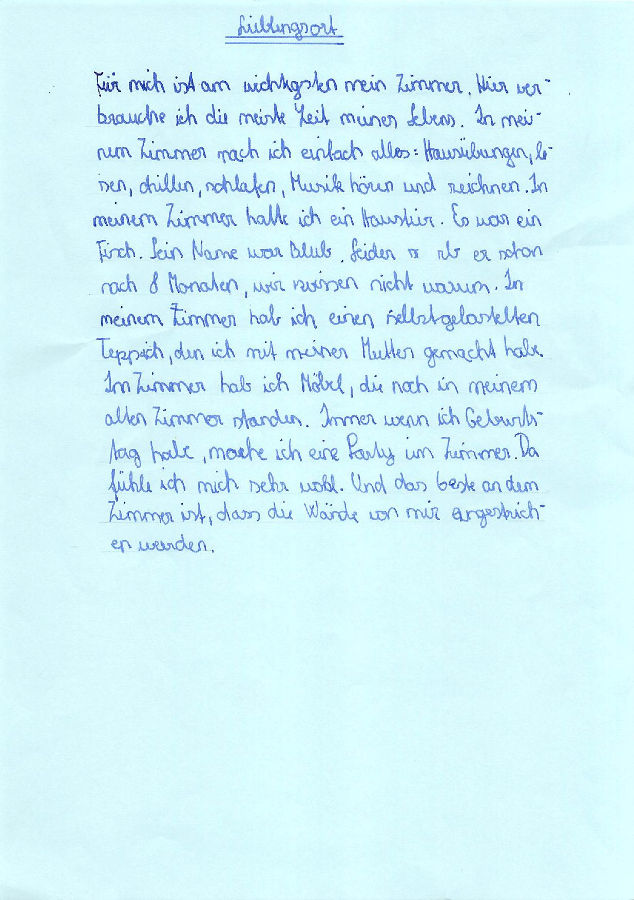 Lieblingsort
Für mich ist am wichtigsten mein Zimmer. Hier ver-
brauche ich die meiste Zeit meines Lebens. In mei-
nem Zimmer mach ich einfach alles: Hausübungen, le-
sen, chillen, schlafen, Musik hören und zeichnen. In
meinem Zimmer hatte ich ein Haustier. Es war ein
Fisch. Sein Name war Blub. Leider er schon
nach 8 Monaten, wir wissen nicht warum. In
meinem Zimmer hab ich einen selbstgebastelten
Teppich, den ich mit meiner Mutter gemacht habe.
Im Zimmer hab ich Möbel, die noch in meinem
alten Zimmer standen. Immer wenn ich Geburts-
tag habe, mache ich eine Party im Zimmer. Da
fühle ich mich sehr wohl. Und das beste an dem
Zimmer ist, dass die Wände von mir angestrich-
en wurden.